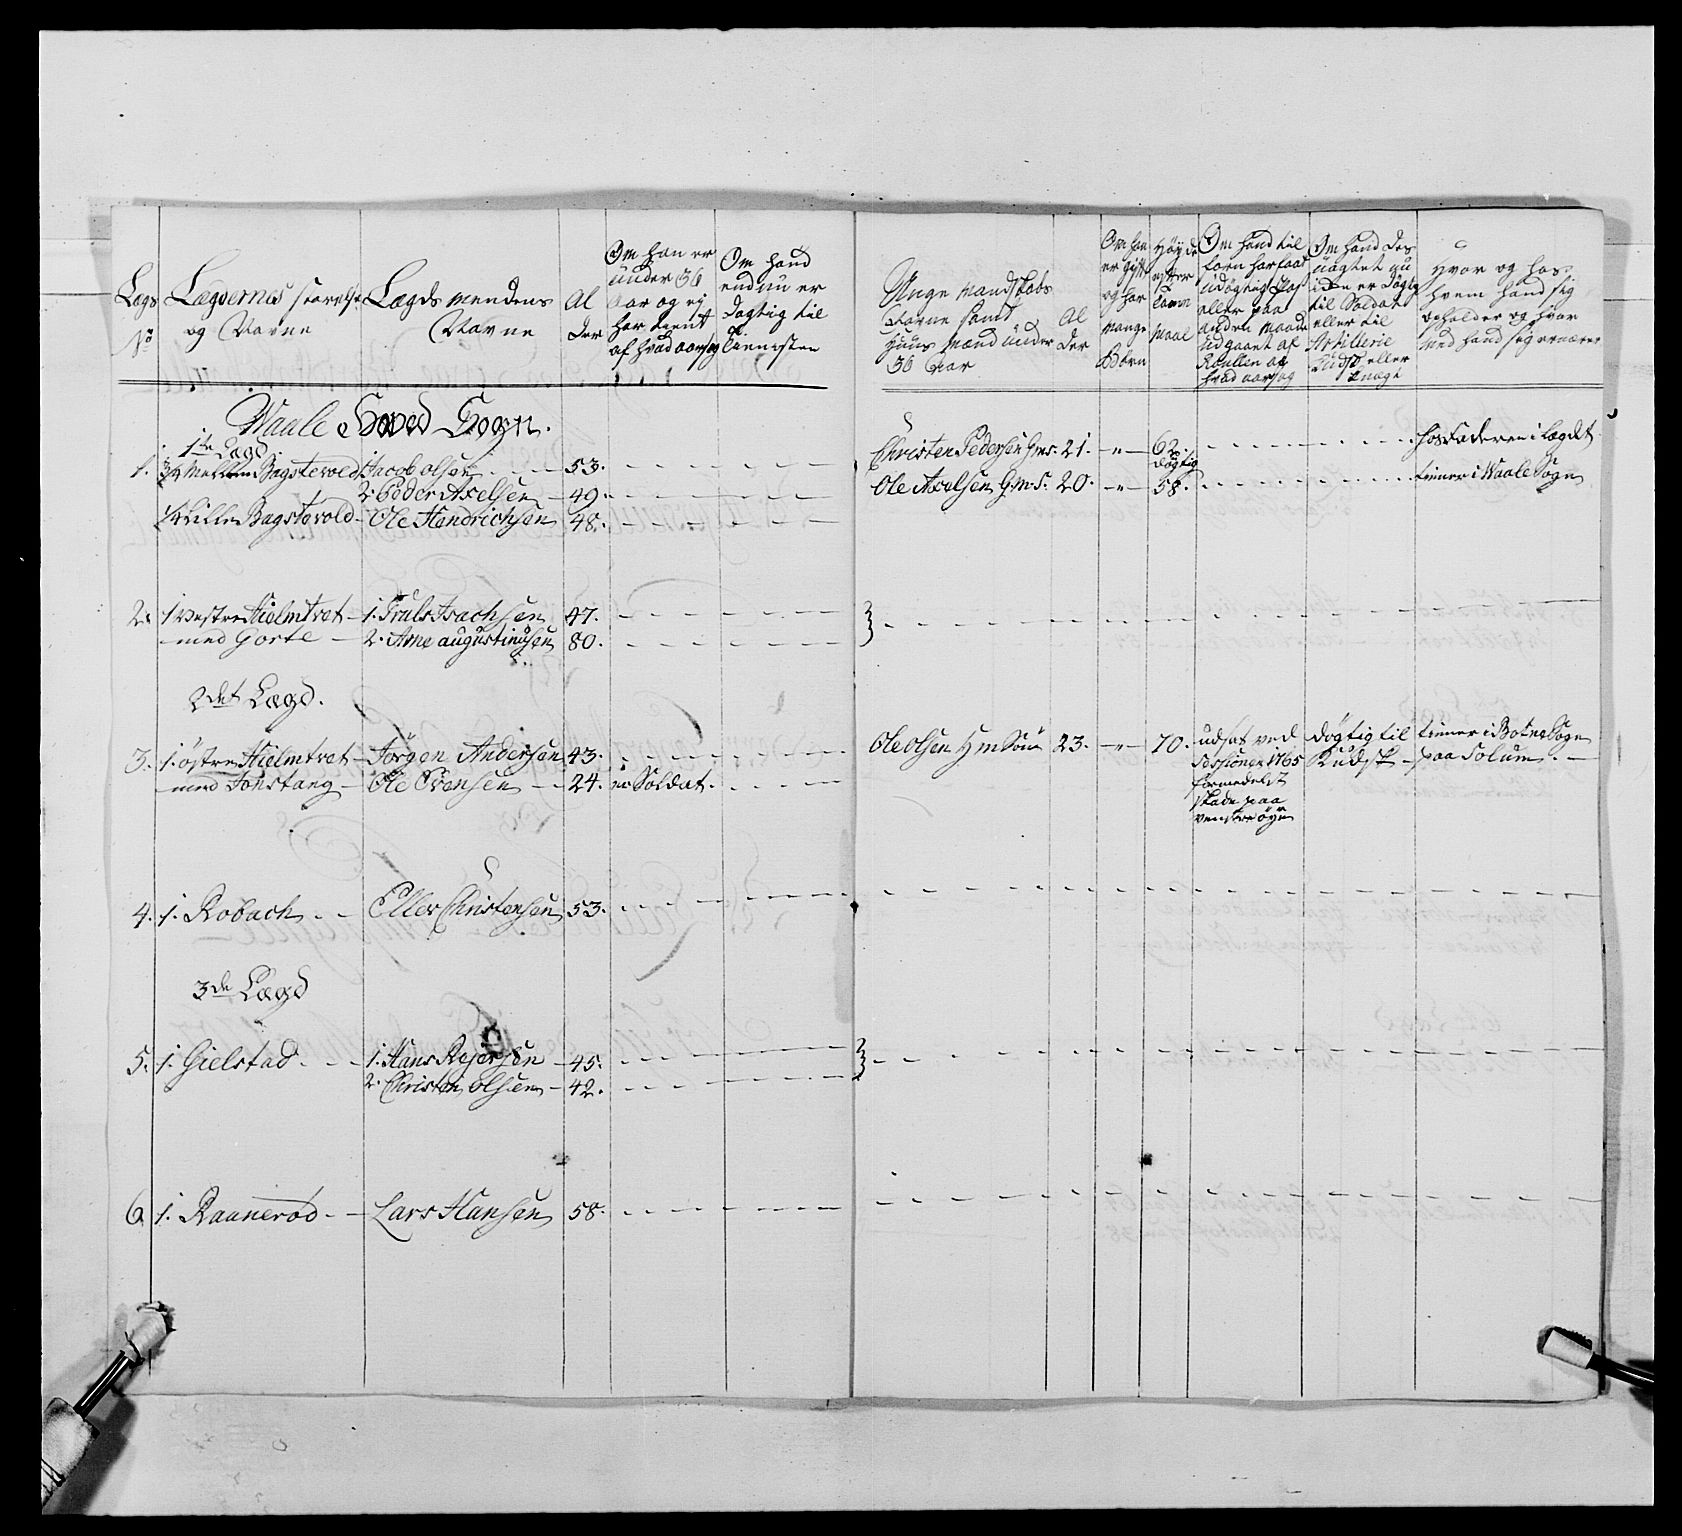 Lægs No
Lægdernes størelse og Navne
Lægds mendens Navne
Al der
Om han er under 36 Aar og ej har tient af hvad aarsag
Om hand endnu er dygtig til Tienesten
Unge Mandskabs Navne samt Huus Mænd under 36 Aar
Al der
Om han er gift og har mange Børn
Høyde efter Tomme Maal
Om hand til forn har faaet udygtig Pas eller paa anden Maade udgaaet af Roullen af hvad aarsag
Om hand des uagtet nu icke er dygtig til Soldat eller til Artillerie Kudsk eller Knægt
Hvor og hos hvem hand sig opholder og hvor med hand sig ernærer
Waale Hoved Sogn.
1te Lægd.
1. 3/4 Mellem Bagstevold 1. Jacob Olsen 53. Christen Pedersen G.m.s. 21. 62. dygtig hos Faderen i Lægdet
2. Peder Axelsen 49. Ole Axelsen G.m.S. 20. 58. tiener i Waale Sogn
1/4 Lille Bagstevold Ole Hendrichsen 48.
2. 1 Vestre Hielmtvet 1. Truls Isachsen 47.
med Gorte 2. Arne augustinusen 80.
2det Lægd.
3. 1. østre Hielmtvet Jørgen Andersen 43. Ole Olsen H m Søn 23. 70. udsat ved dygtig til tiener i Botne Sogn
med Fonstang Ole Svensen 24. er Soldat. Sessionen 1765 Kudsk paa Solum.
formedelst
skade paa
venstre øye
4. 1. Robach Eller Christensen 53.
3de Lægd
5. 1. Gielstad 1. Hans Rejersen 45.
2. Christen Olsen 42.
6. 1. Raanerød Lars Hansen 58.